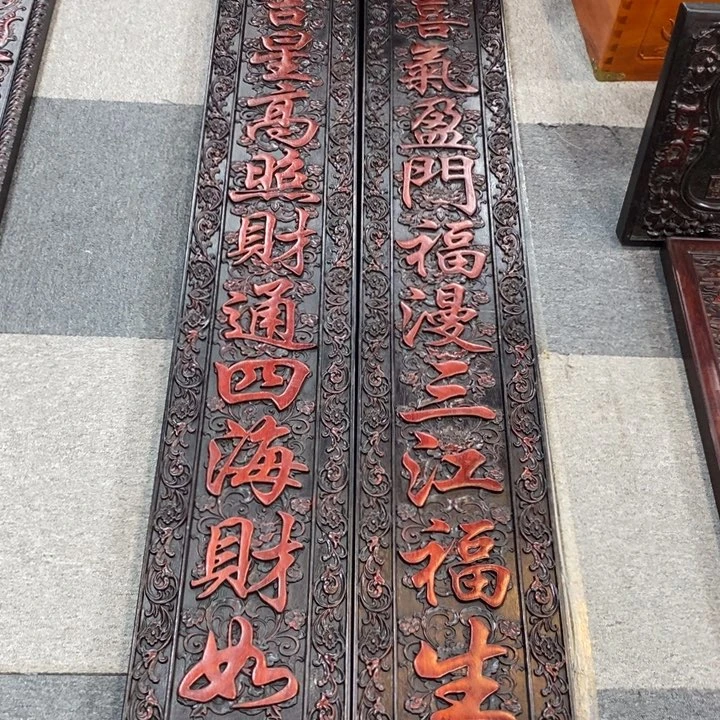 喜氣盈門福漫三江福生
吉星高照財通四海財如